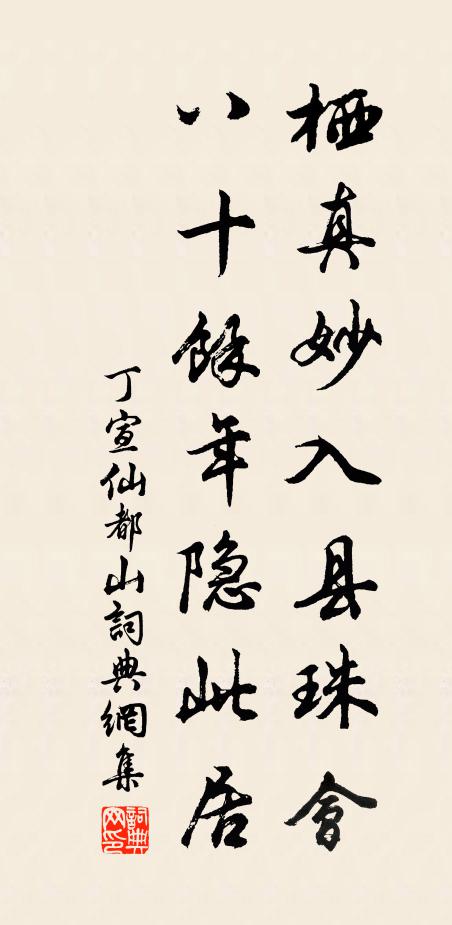 栖真妙入县珠會
八十餘年隐此居
丁宣仙都山詞典網集
詞典网印